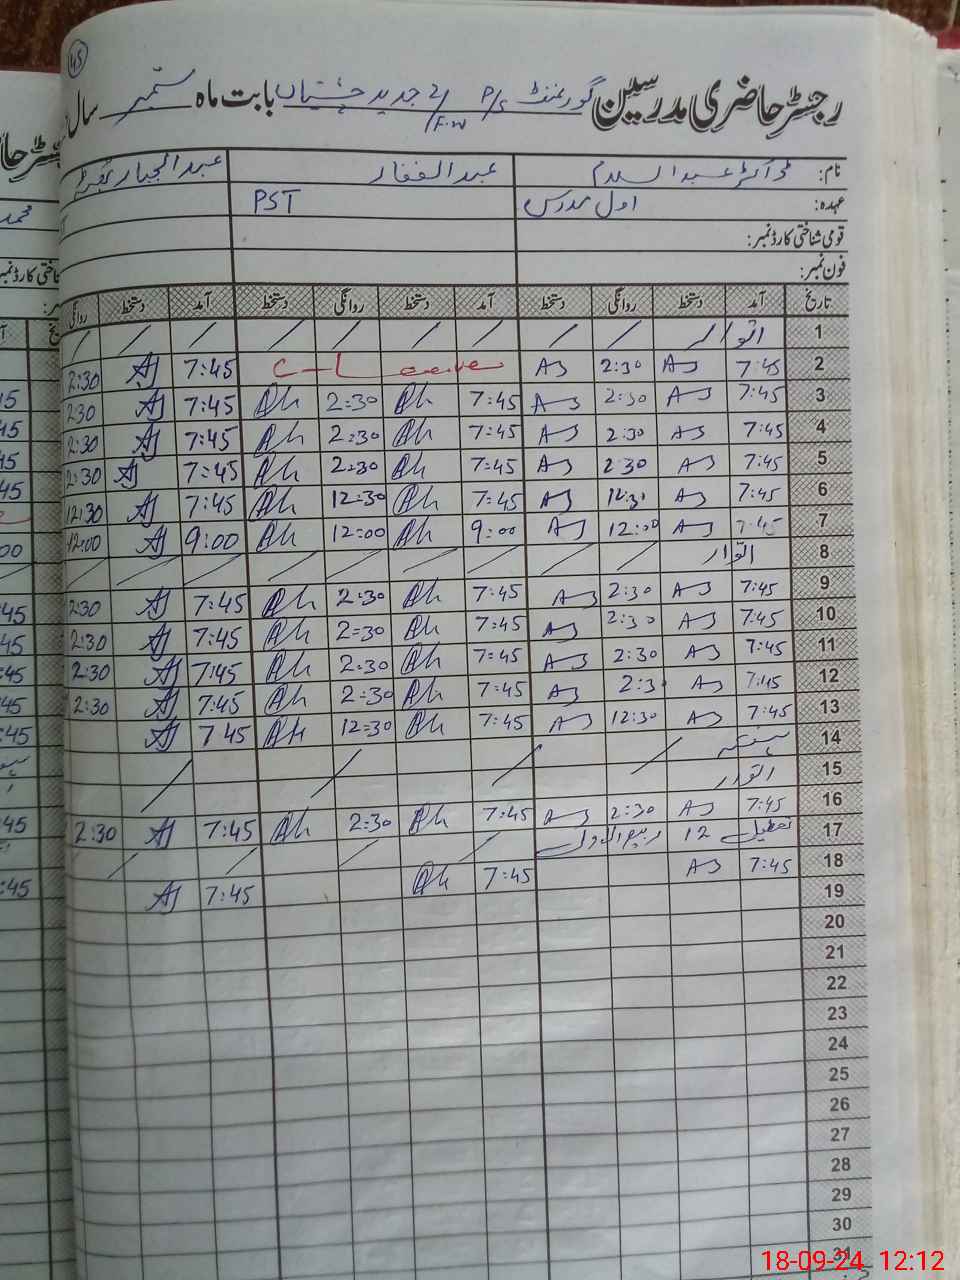 45
رجسٹر حاضری مدرسین گورنمنٹ P/S جدید چشتیاں بابت ماہ ستمبر سال
نام: ڈاکٹر عبدالسلام عبدالغفار عبدالجبار
عہدہ: اول مدرس PST
قومی شناختی کارڈ نمبر:
فون نمبر:
تاریخ آمد دستخط روانگی دستخط آمد دستخط روانگی دستخط آمد دستخط روانگی
1 اتوار
2 7:45 AS 2:30 AS C-Leave 7:45 AJ 2:30
3 7:45 AS 2:30 AS 7:45 Ah 2:30 Ah 7:45 AJ 2:30
4 7:45 AS 2:30 AS 7:45 Ah 2:30 Ah 7:45 AJ 2:30
5 7:45 AS 2:30 AS 7:45 Ah 2:30 Ah 7:45 AJ 2:30
6 7:45 AS 12:30 AS 7:45 Ah 12:30 Ah 7:45 AJ 12:30
7 7:45 AS 12:00 AS 9:00 Ah 12:00 Ah 9:00 AJ 12:00
8 اتوار
9 7:45 AS 2:30 AS 7:45 Ah 2:30 Ah 7:45 AJ 2:30
10 7:45 AS 2:30 AS 7:45 Ah 2:30 Ah 7:45 AJ 2:30
11 7:45 AS 2:30 AS 7:45 Ah 2:30 Ah 7:45 AJ 2:30
12 7:45 AS 2:30 AS 7:45 Ah 2:30 Ah 7:45 AJ 2:30
13 7:45 AS 12:30 AS 7:45 Ah 12:30 Ah 7 45 AJ
14 ہفتہ
15 اتوار
16 7:45 AS 2:30 AS 7:45 Ah 2:30 Ah 7:45 AJ 2:30
17 تعطیل 12 ربیع الاول
18 7:45 AS 7:45 Ah 7:45 AJ
19
20
21
22
23
24
25
26
27
28
29
30
31
18-09-24 12:12